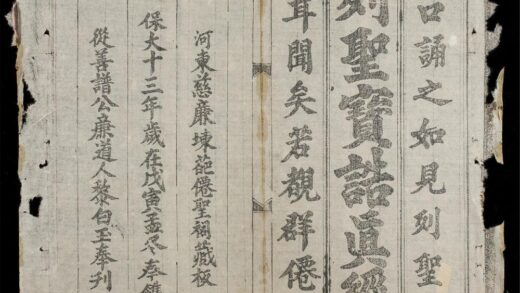 口誦之如見列聖
列聖寶誥眞經
耳聞矣若覩群僊
河東慈廉堜葩僊聖祠藏板
保大十三年歲在戊寅孟冬奉鐫
從善譜公廉道人黎白玉奉刊